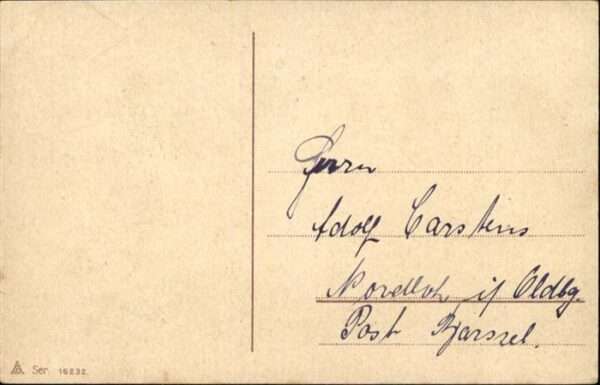 Herrn
Adolf Carstens
Nordloh i/ Oldbg.
Post Barssel.
Ser. 16232.